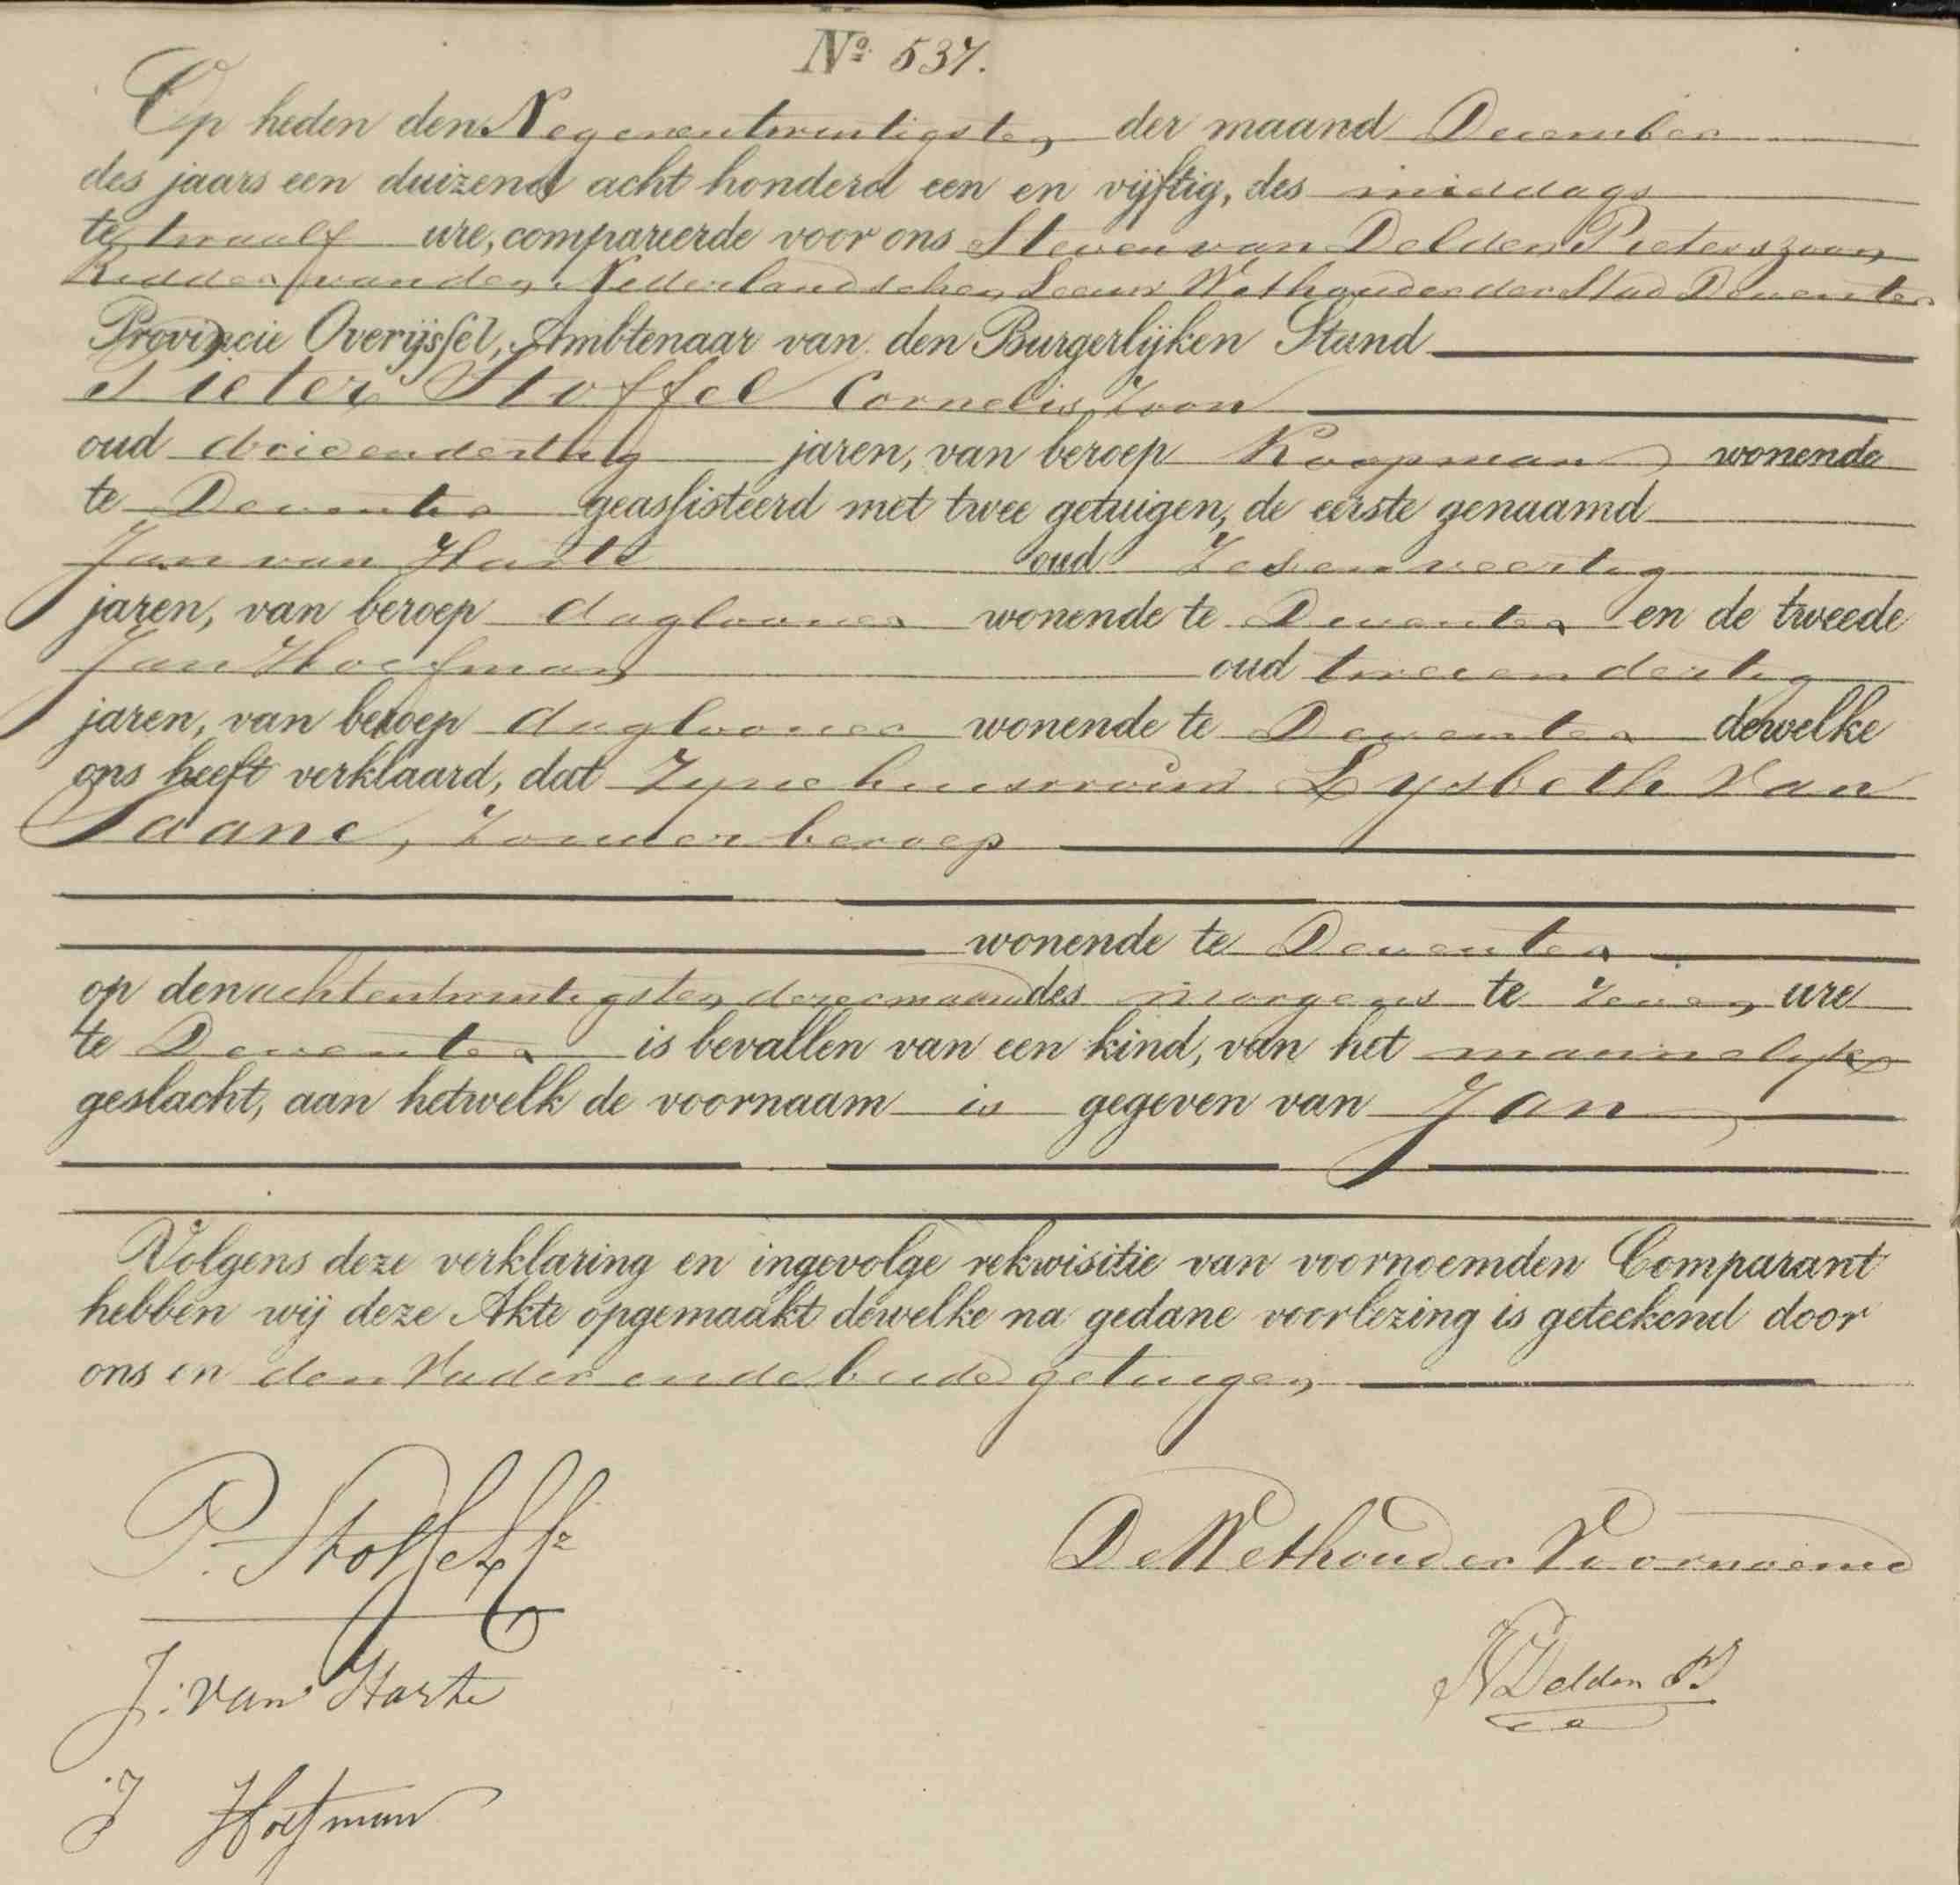 No. 537.
Op heden den Negenentwintigsten der maand December
des jaars een duizend acht honderd een en vijftig, des middags
te twaalf ure, compareerde voor ons Steven van Delden Pieterszoon
Ridder van den Nederlandschen Leeuw Wethouder der Stad Deventer
Provincie Overijssel, Ambtenaar van den Burgerlijken Stand
Pieter Stoffel Corneliszoon
oud drieendertig jaren, van beroep Koopman wonende
te Deventer geassisteerd met twee getuigen, de eerste genaamd
Jan van Harte oud Zesenveertig
jaren, van beroep daglooner wonende te Deventer en de tweede
Jan Hoefman oud tweeendertig
jaren, van beroep daglooner wonende te Deventer dewelke
ons heeft verklaard, dat Zyne huisvrouw Lysbeth Van
Saane, zonder beroep
wonende te Deventer
op den achtentwintigsten dezer maand des morgens te zeven ure
te Deventer is bevallen van een kind, van het mannelyke
geslacht, aan hetwelk de voornaam is gegeven van Jan
Volgens deze verklaring en ingevolge rekwisitie van voornoemden Comparant
hebben wij deze Akte opgemaakt dewelke na gedane voorlezing is geteekend door
ons en den Vader en de beide getuigen
P. Stoffel Cz
De Wethouder Voornoemd
J. van Harte
VDelden Pz
J Hoefman